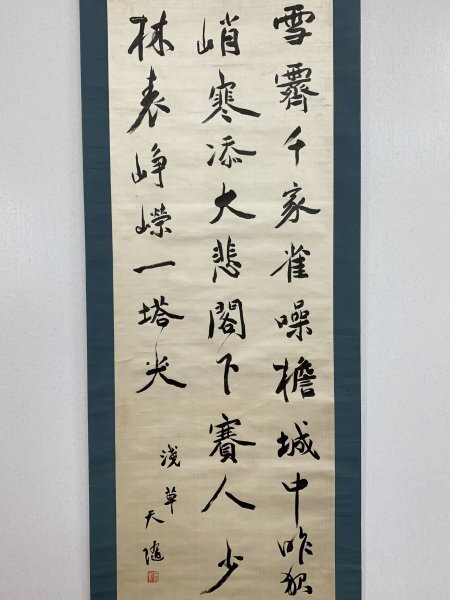 雪霽千家雀噪檐城中昨夜
峭寒添大悲閣下賽人少
林表崢嶸一塔尖
淺草
天隨